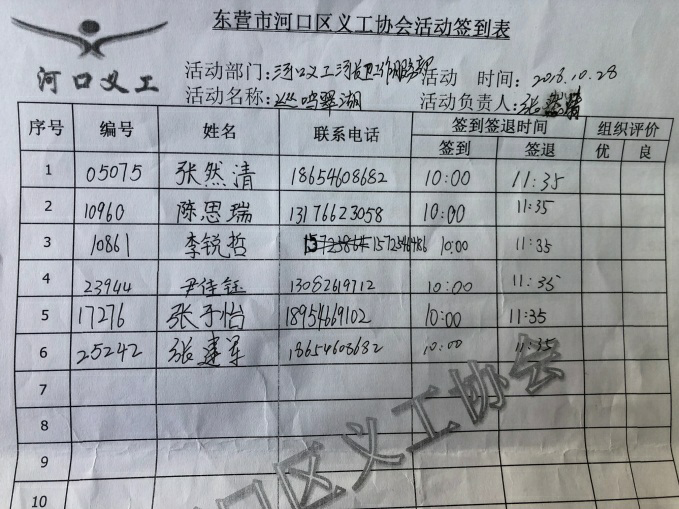 东营市河口区义工协会活动签到表
河口义工
活动部门：河口义工河 工作服务部 活动 时间：2018.10.28
活动名称： 鸣翠湖 活动负责人：张
序号 编号 姓名 联系电话 签到签退时间 组织评价
签到 签退 优 良
1 05075 张然清 18654608682 10:00 11:35
2 10960 陈思瑞 13176623058 10:00 11:35
3 10861 李锐哲 1572546486 10:00 11:35
4 23944 尹佳钰 13082619712 10:00 11:35
5 17276 张于怡 18954669102 10:00 11:35
6 25242 张建军 18654608682 10:00 11:35
7
8
9
10
口区义工协会